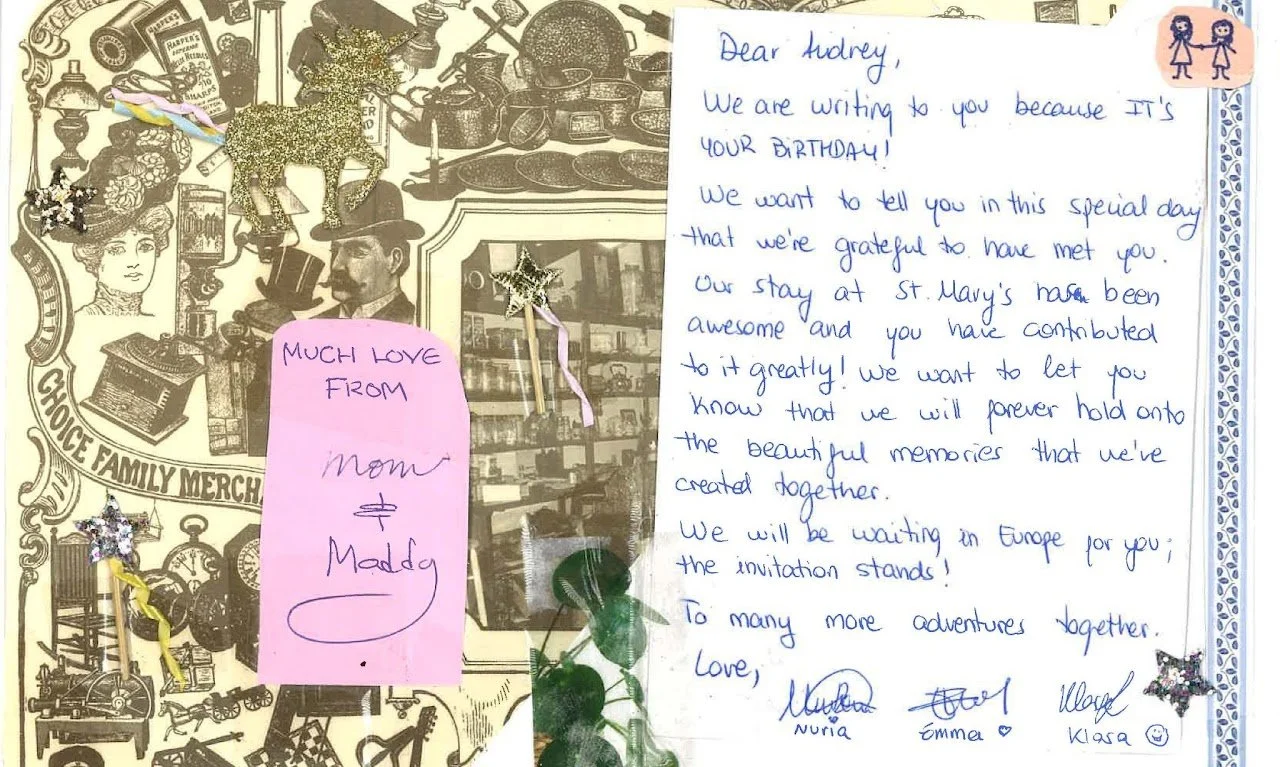 HARPER'S
NEEDLES
SHARPS
CHOICE FAMILY MERCH
MUCH LOVE
FROM
Mom
&
Maddy
Dear Audrey,
We are writing to you because IT'S
YOUR BIRTHDAY!
We want to tell you in this special day
that we're grateful to have met you.
Our stay at St. Mary's has been
awesome and you have contributed
to it greatly! We want to let you
know that we will forever hold onto
the beautiful memories that we've
created together.
We will be waiting in Europe for you;
the invitation stands!
To many more adventures together.
Love,
Nuria Emma ♡ Klara ☺